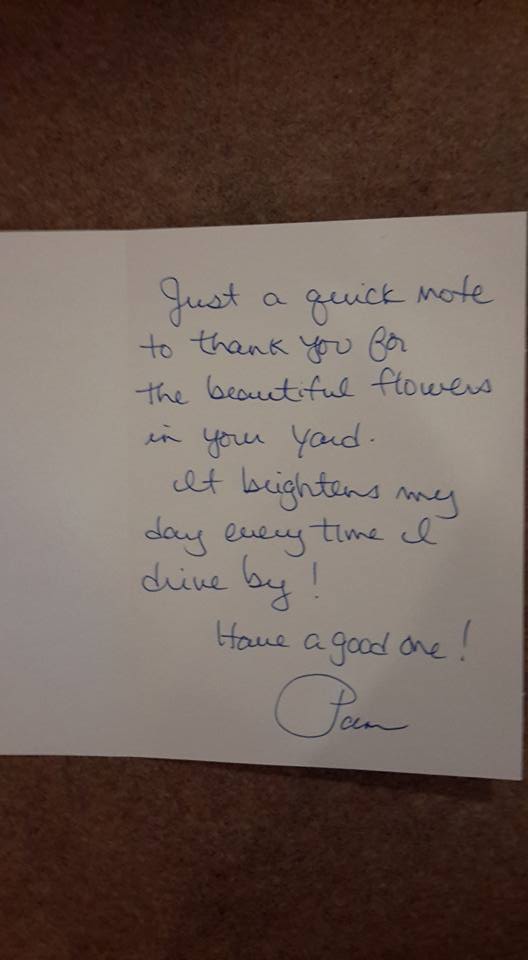 Just a quick note
to thank you for
the beautiful flowers
in your yard.
It brightens my
day every time I
drive by!
Have a good one!
Pam